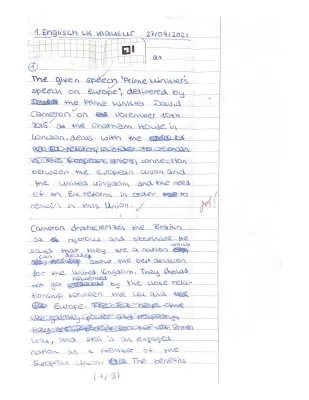 1. Englisch LK Klausur 27/09/2021
1
The given speech "Prime Minister's
speech on Europe", delivered by
the Prime Minister David
Cameron on November 10th
2015 at the Chatham House in
London, deals with the
connection
between the European Union and
the United Kingdom and the need
of an EU reform in order to
remain in this Union.
gut!
Cameron characterizes the British
as rigorous and obstinate. He
says that they are a nation which
can decide about the best decision
for the United Kingdom. They should
not get influenced by the close rela-
tionship between the UK and
Europe.
Britain
was, and still is an engaged
nation as a member of the
European Union. The benefits
(1/3)